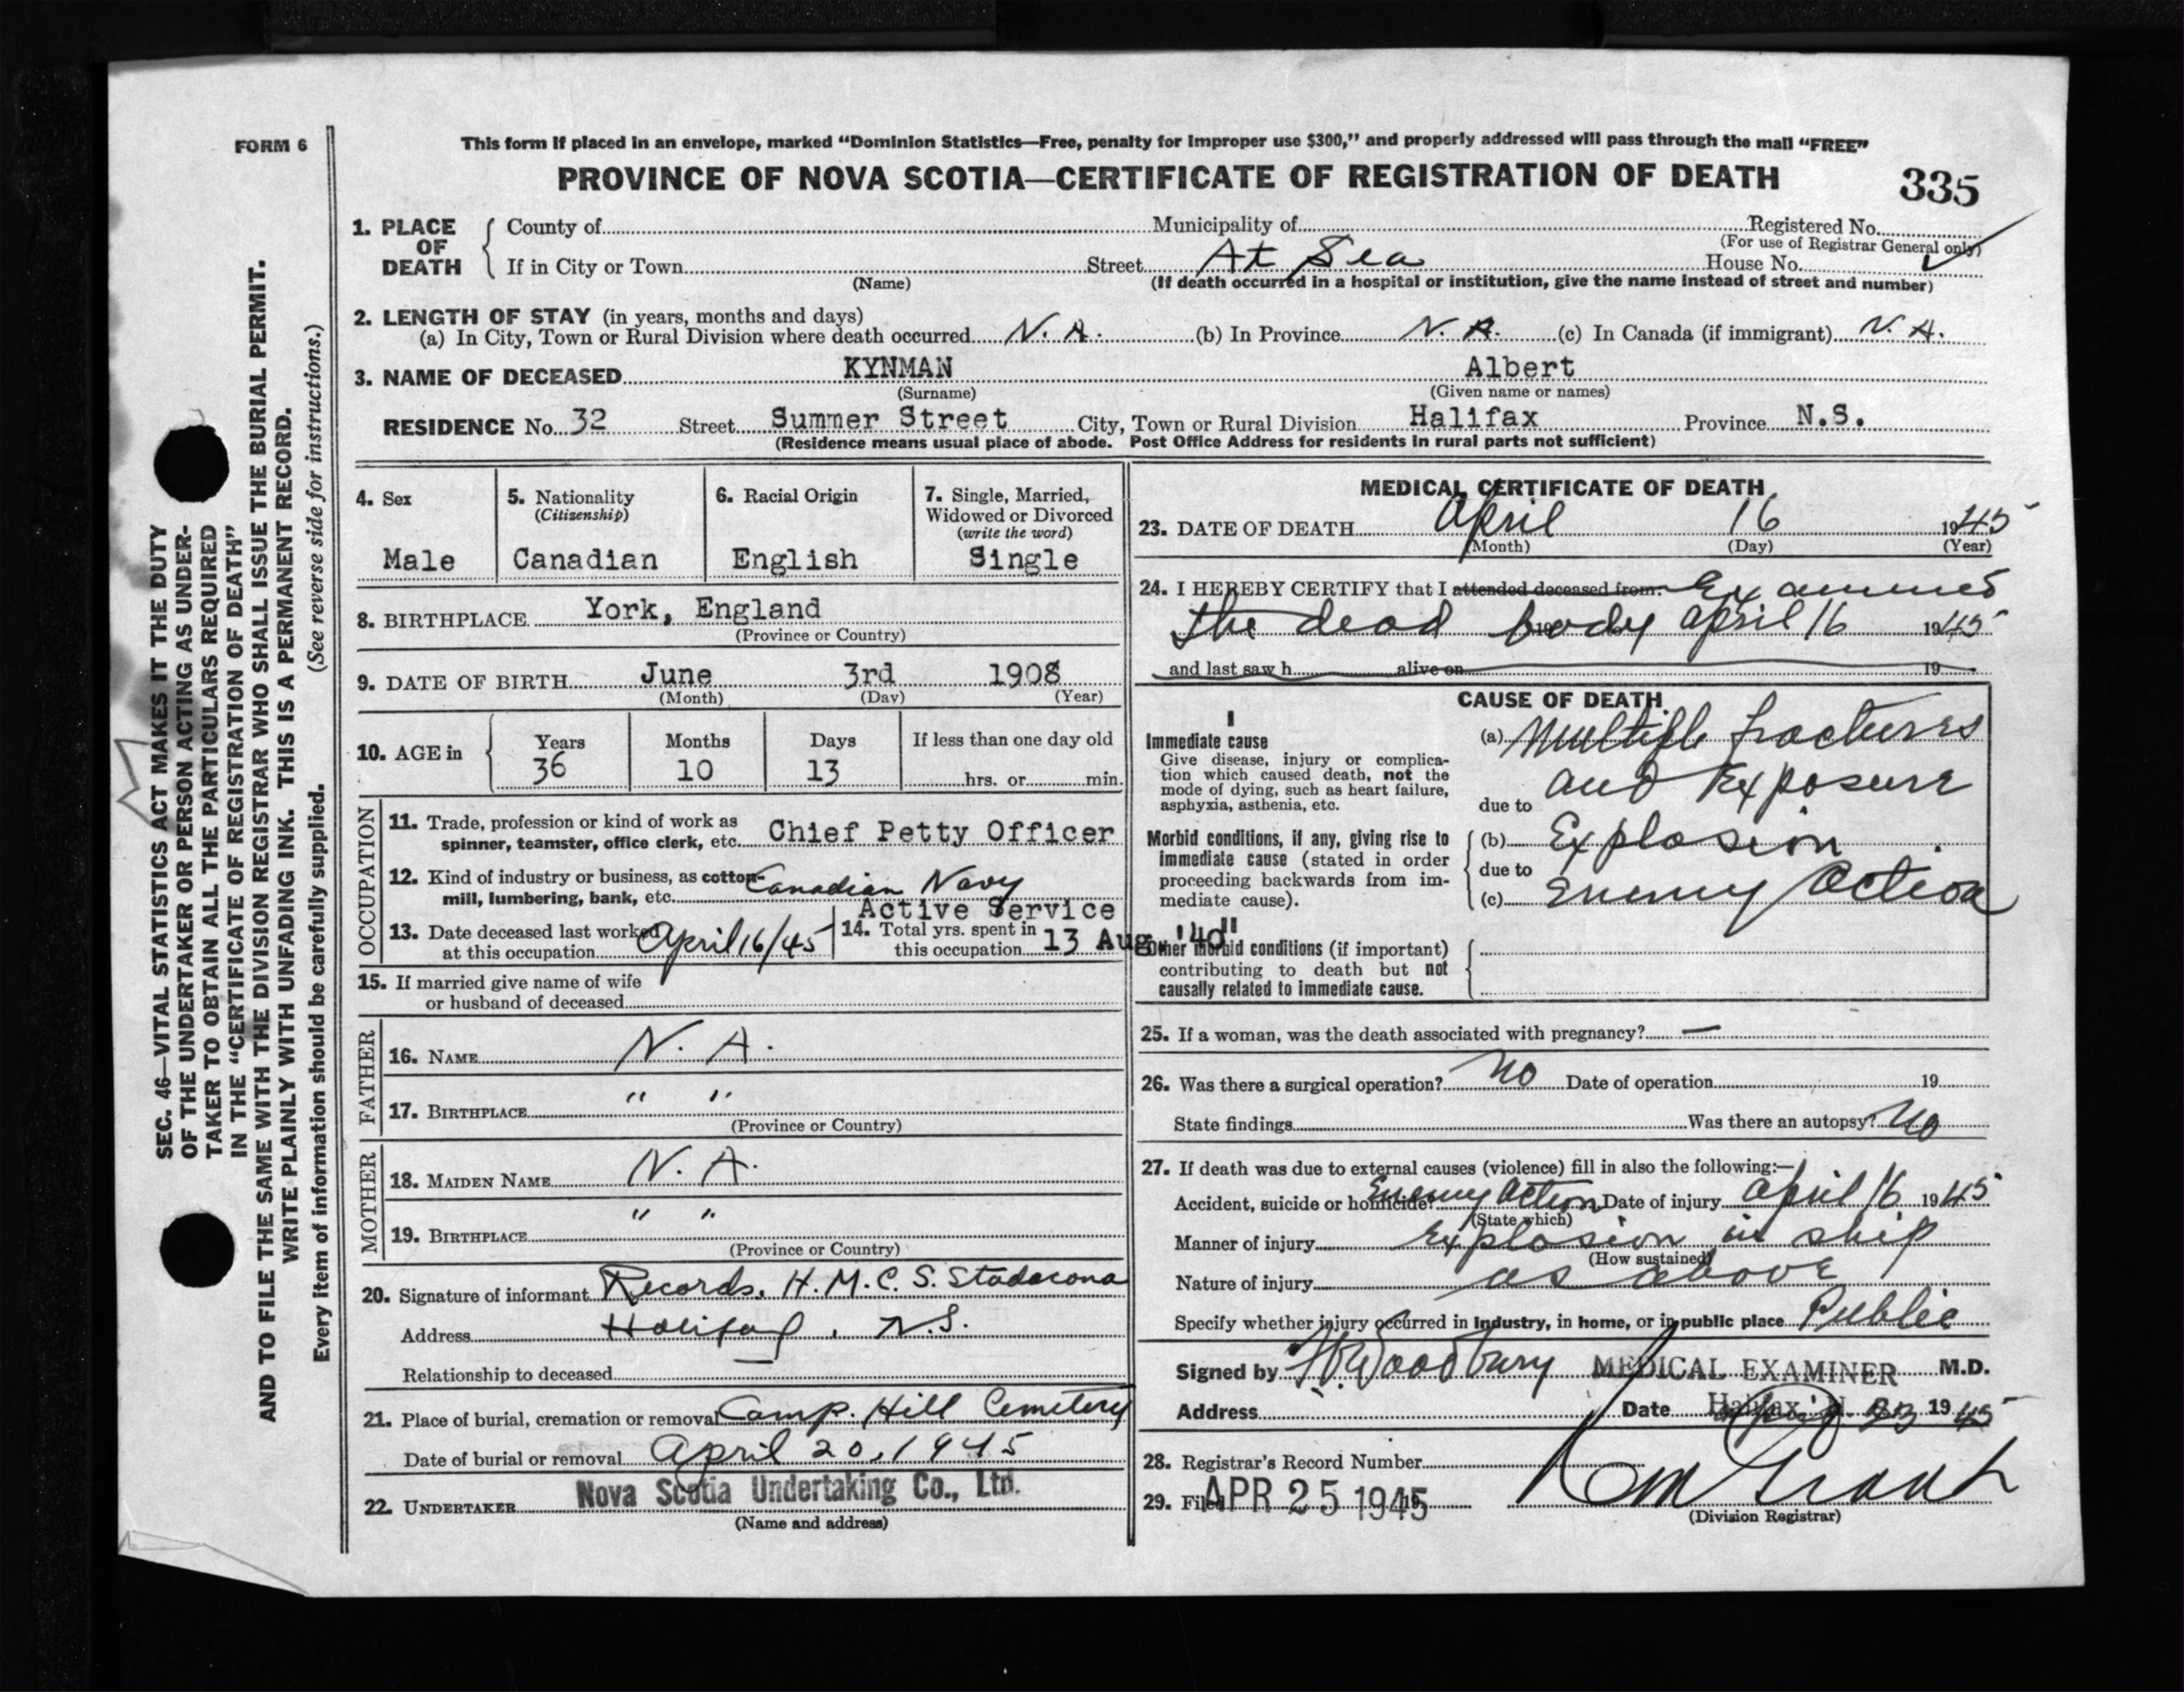 FORM 6
This form if placed in an envelope, marked "Dominion Statistics—Free, penalty for improper use $300," and properly addressed will pass through the mail "FREE"
PROVINCE OF NOVA SCOTIA—CERTIFICATE OF REGISTRATION OF DEATH
335
1. PLACE OF DEATH
County of Municipality of Registered No.
(For use of Registrar General only)
If in City or Town Street At Sea House No.
(Name) (If death occurred in a hospital or institution, give the name instead of street and number)
2. LENGTH OF STAY (in years, months and days)
(a) In City, Town or Rural Division where death occurred N. A. (b) In Province N. A. (c) In Canada (if immigrant) N. A.
3. NAME OF DECEASED KYNMAN Albert
(Surname) (Given name or names)
RESIDENCE No. 32 Street Summer Street City, Town or Rural Division Halifax Province N.S.
(Residence means usual place of abode. Post Office Address for residents in rural parts not sufficient)
4. Sex
Male
5. Nationality
(Citizenship)
Canadian
6. Racial Origin
English
7. Single, Married,
Widowed or Divorced
(write the word)
Single
8. BIRTHPLACE York, England
(Province or Country)
9. DATE OF BIRTH June 3rd 1908
(Month) (Day) (Year)
10. AGE in
Years Months Days If less than one day old
36 10 13 hrs. or min.
OCCUPATION
11. Trade, profession or kind of work as
spinner, teamster, office clerk, etc. Chief Petty Officer
12. Kind of industry or business, as cotton-
mill, lumbering, bank, etc. Canadian Navy
Active Service
13. Date deceased last worked
at this occupation April 16/45
14. Total yrs. spent in
this occupation 13 Aug. '40"
15. If married give name of wife
or husband of deceased
FATHER
16. NAME N. A.
17. BIRTHPLACE " "
(Province or Country)
MOTHER
18. MAIDEN NAME N. A.
19. BIRTHPLACE " "
(Province or Country)
20. Signature of informant Records, H.M.C.S. Stadacona
Address Halifax, N.S.
Relationship to deceased —
21. Place of burial, cremation or removal Camp. Hill Cemetery
Date of burial or removal April 20, 1945
22. UNDERTAKER Nova Scotia Undertaking Co., Ltd.
(Name and address)
MEDICAL CERTIFICATE OF DEATH
23. DATE OF DEATH April 16 1945
(Month) (Day) (Year)
24. I HEREBY CERTIFY that I attended deceased from: Examined
the dead body April 16 1945
and last saw h alive on 19
CAUSE OF DEATH
I
Immediate cause
Give disease, injury or complica-
tion which caused death, not the
mode of dying, such as heart failure,
asphyxia, asthenia, etc.
(a) Multiple fractures
and Exposure
due to
Morbid conditions, if any, giving rise to
immediate cause (stated in order
proceeding backwards from im-
mediate cause).
(b) Explosion
due to
(c) Enemy Action
II
Other morbid conditions (if important)
contributing to death but not
causally related to immediate cause.
25. If a woman, was the death associated with pregnancy? —
26. Was there a surgical operation? No Date of operation 19
State findings Was there an autopsy? No
27. If death was due to external causes (violence) fill in also the following:—
Accident, suicide or homicide? Enemy Action Date of injury April 16 1945
(State which)
Manner of injury Explosion in ship
(How sustained)
Nature of injury as above
Specify whether injury occurred in industry, in home, or in public place Public
Signed by Woodbury MEDICAL EXAMINER M.D.
Address Date Halifax, N. 1945
28. Registrar's Record Number
29. Filed APR 25 1945 Grant
(Division Registrar)
SEC. 46—VITAL STATISTICS ACT MAKES IT THE DUTY
OF THE UNDERTAKER OR PERSON ACTING AS UNDER-
TAKER TO OBTAIN ALL THE PARTICULARS REQUIRED
IN THE "CERTIFICATE OF REGISTRATION OF DEATH"
AND TO FILE THE SAME WITH THE DIVISION REGISTRAR WHO SHALL ISSUE THE BURIAL PERMIT.
WRITE PLAINLY WITH UNFADING INK. THIS IS A PERMANENT RECORD.
Every item of information should be carefully supplied. (See reverse side for instructions.)